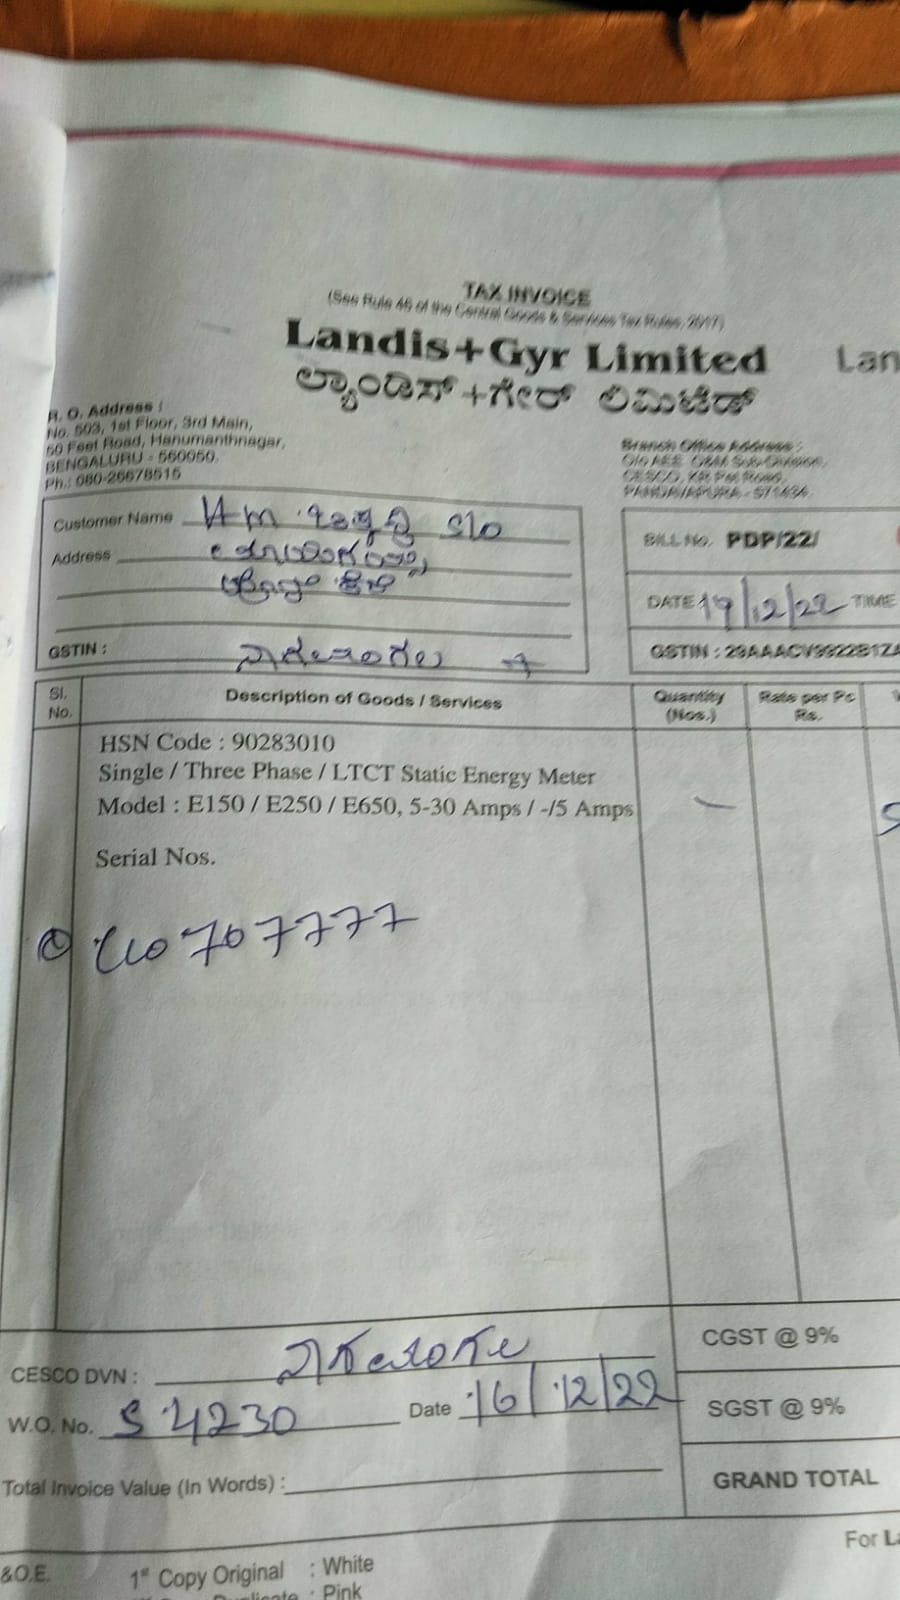 TAX INVOICE
(See Rule 46 of the Central Goods & Services Tax Rules, 2017)
Landis+Gyr Limited
Lan
ಲ್ಯಾಂಡಿಸ್+ಗೇರ್ ಲಿಮಿಟೆಡ್
R. O. Address :
No. 503, 1st Floor, 3rd Main,
50 Feet Road, Hanumanthnagar,
BENGALURU - 560050.
Ph.: 080-26678515
Branch Office Address :
O/o AEE, O&M Sub-Division,
CESCO, KR Pet Road,
PANDAVAPURA - 571434.
Customer Name S/o
Address
GSTIN :
BILL No. PDP/22/
DATE 19/12/22 TIME
GSTIN : 29AAACV9922B1ZA
Sl. No. Description of Goods / Services Quantity (Nos.) Rate per Pc Rs.
HSN Code : 90283010
Single / Three Phase / LTCT Static Energy Meter
Model : E150 / E250 / E650, 5-30 Amps / -/5 Amps
Serial Nos.
707777
CESCO DVN :
W.O. No. S 4230 Date 16/12/22
Total Invoice Value (In Words) :
CGST @ 9%
SGST @ 9%
GRAND TOTAL
For La
&O.E.
1st Copy Original : White
: Pink